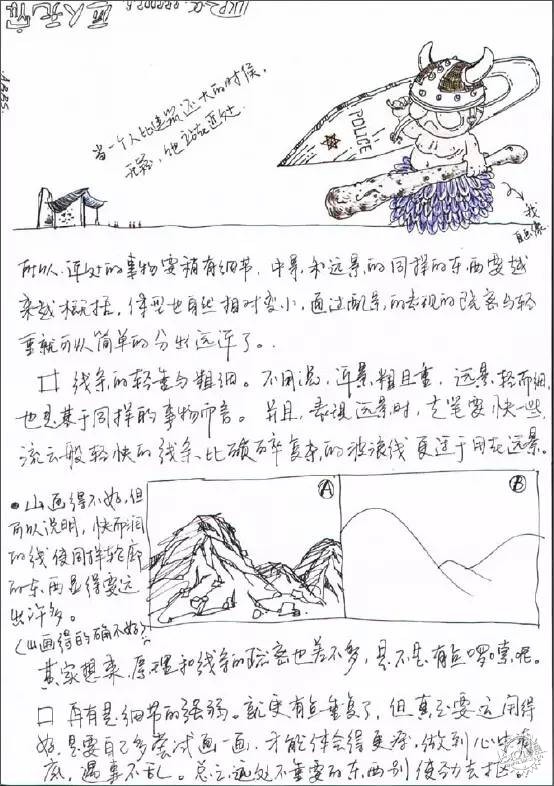 当一个人比建筑还大的时候。
无疑，他站在近处
POLICE
我
自画像
所以，近处的事物要稍有细节，中景和远景的同样的东西要越
来越概括，体型也自然相对变小，通过配景的表现的疏密与轻
重就可以简单的分出远近了。
口 线条的轻重与粗细。不用说，近景粗且重，远景轻而细，
也是基于同样的事物而言。并且，表现远景时，走笔要快一些，
流云般轻快的线条，比琐碎复杂的波浪线更适于用在远景。
• 山画得不好，但
可以说明，快而润
的线使同样轮廓
的东西显得要远
出许多。
（山画得的确不好）
A
B
其实想来，原理和线条的疏密也差不多，是不是有点啰嗦呢。
口 再有是细节的强弱。就更有点重复了，但真正要运用得
好，是要自己多尝试画一画，才能体会得更深，做到心中有
底，遇事不乱。总之远处不重要的东西别使劲去抠。